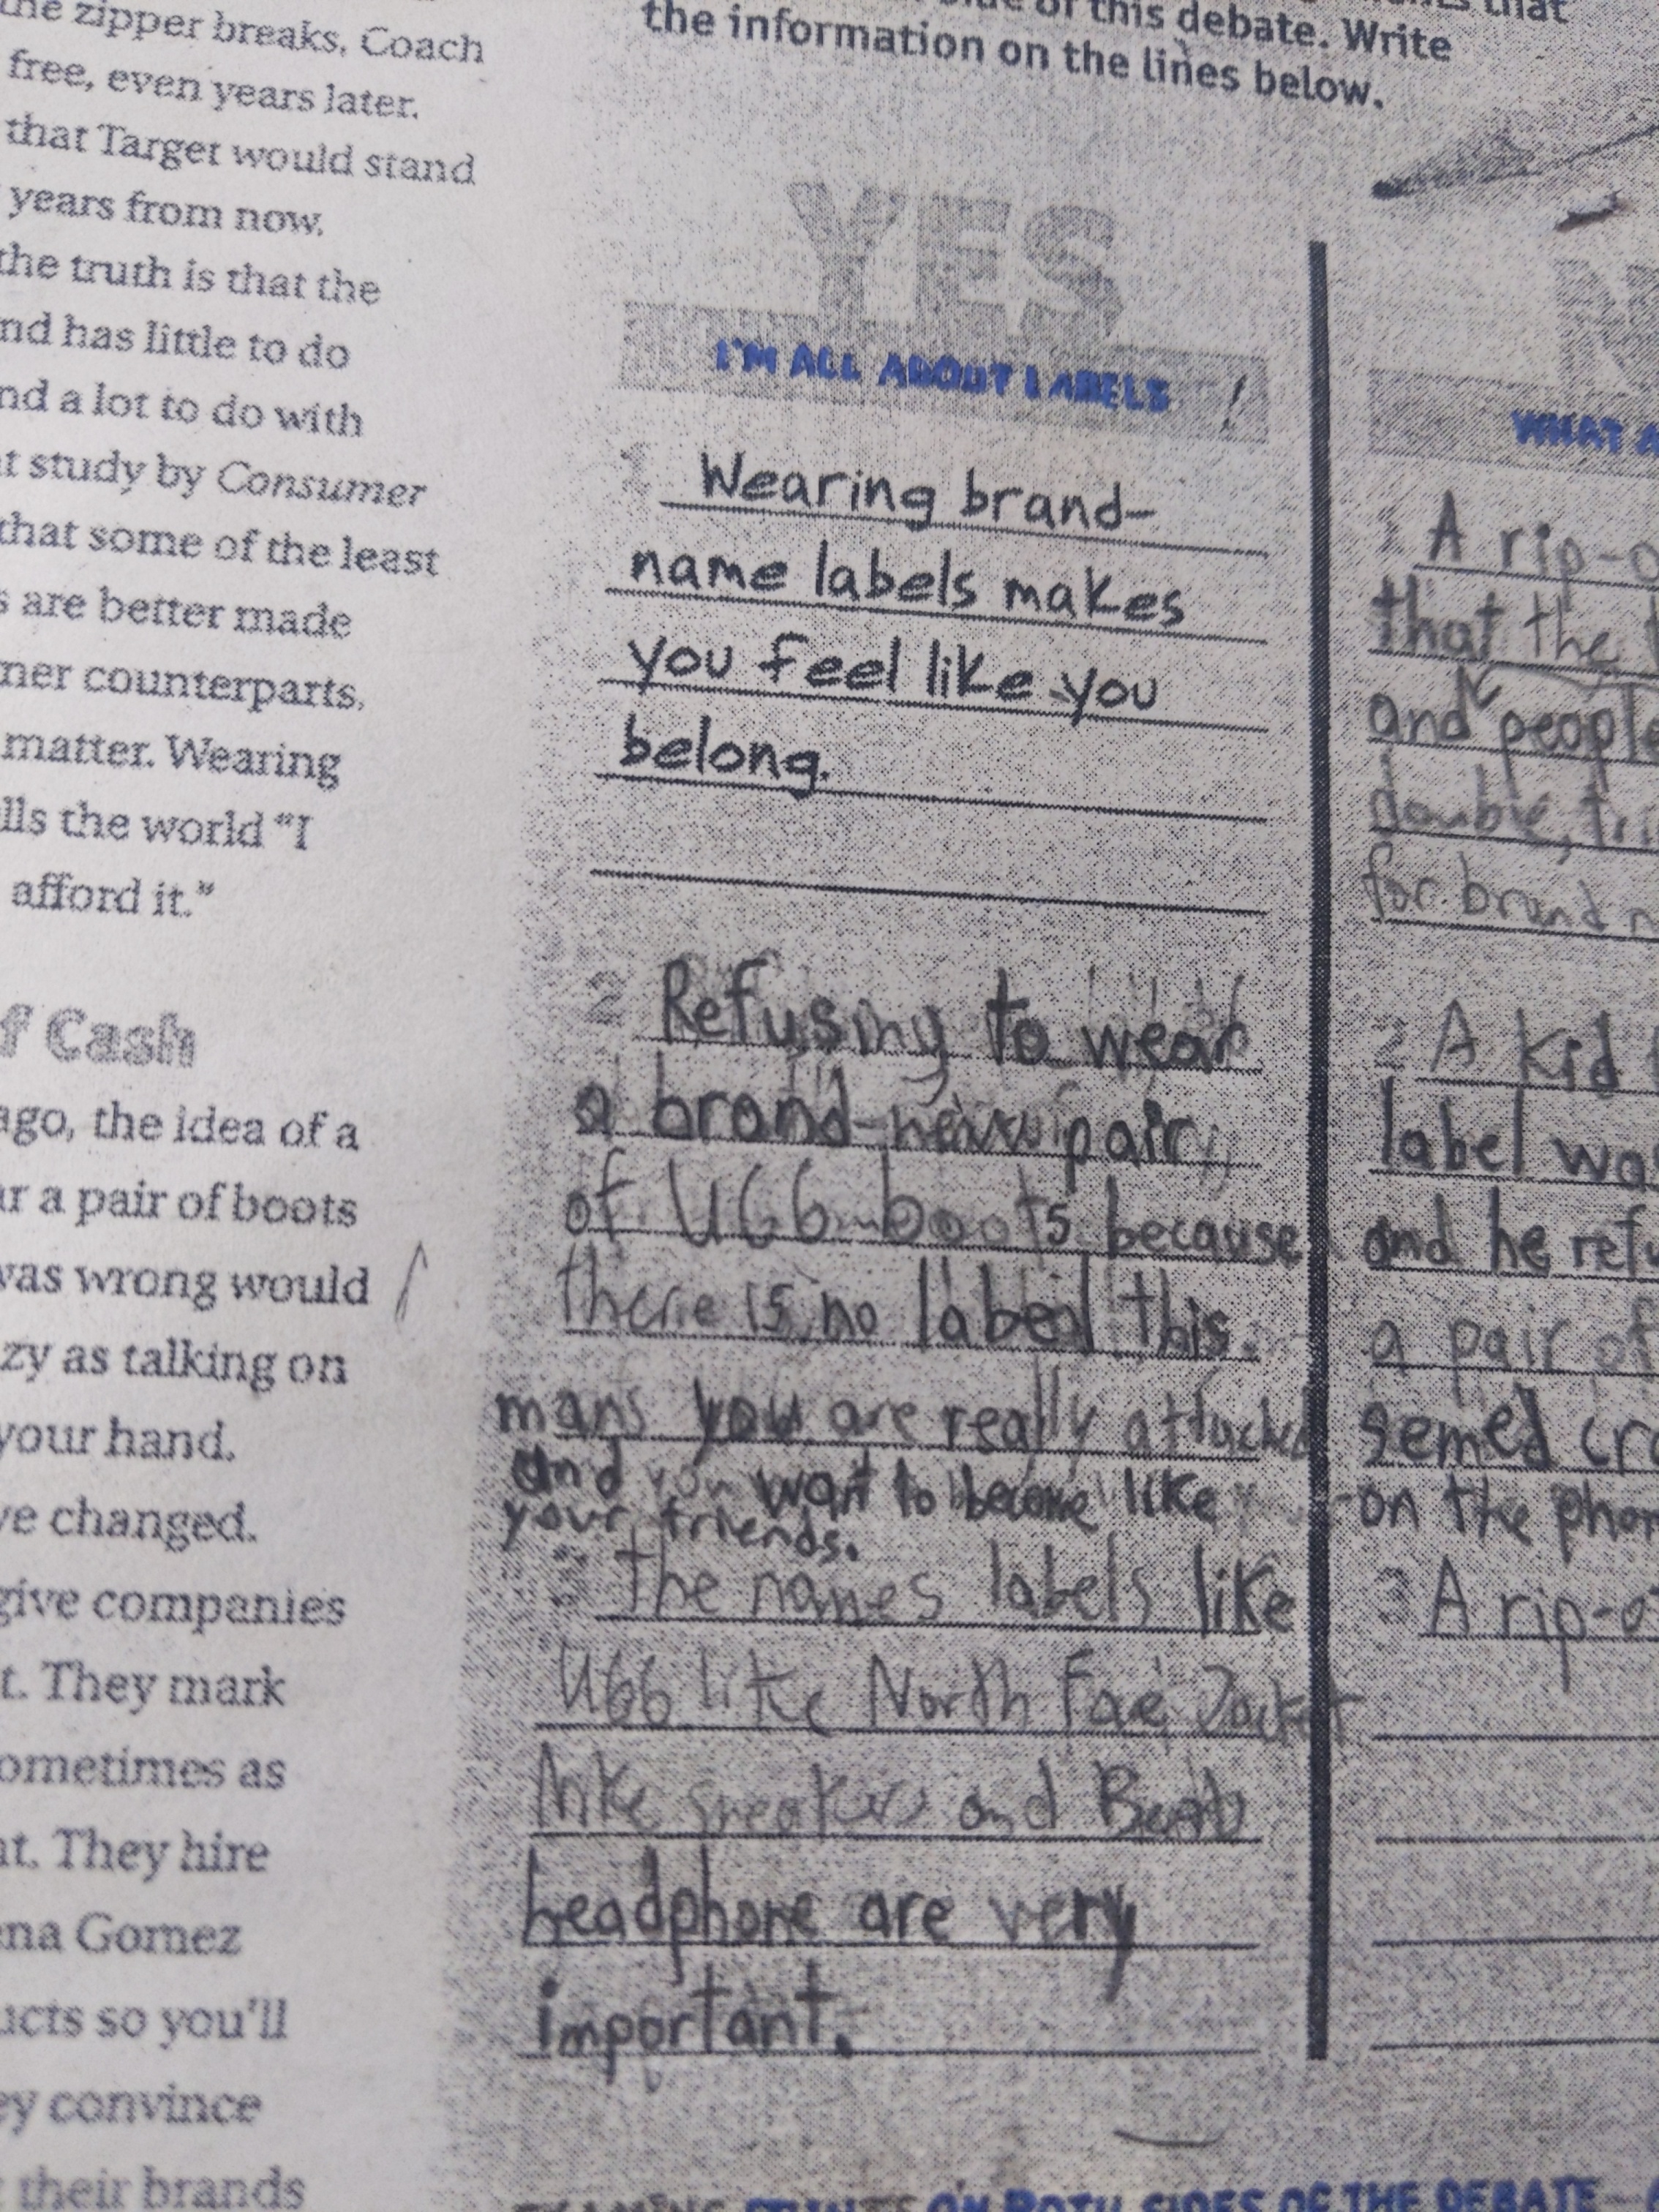 the zipper breaks, Coach
free, even years later.
that Target would stand
years from now.
the truth is that the
nd has little to do
nd a lot to do with
t study by Consumer
that some of the least
s are better made
ner counterparts.
matter. Wearing
lls the world "I
afford it."
f Cash
ago, the idea of a
ar a pair of boots
was wrong would
zy as talking on
your hand.
ve changed.
give companies
t. They mark
ometimes as
nt. They hire
ena Gomez
ucts so you'll
ey convince
their brands
of this debate. Write
the information on the lines below.
YES
I'M ALL ABOUT LABELS !
1 Wearing brand-
name labels makes
you feel like you
belong.
2 Refusing to wear
a brand-new pair
of UGG boots because
there is no label this.
mans you are really attached
and you want to become like
your friends.
3 The names labels like
UGG like North Face Jacket
Nike sneakers and
headphone are very
important.
WHAT A
1 A rip-o
that the
and people
double, tri
for brand n
2 A kid
label was
and he refu
a pair of
semed cra
on the phon
3 A rip-o
ON BOTH SIDES OF THE DEBATE